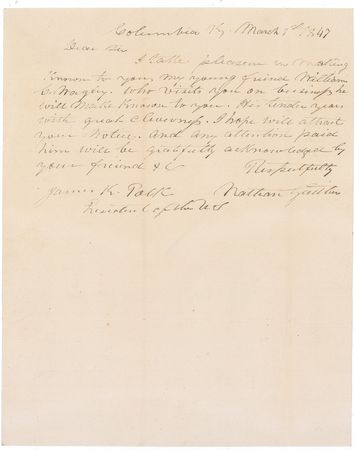 Columbia Ky. March 1st 1847
Dear Sir
I take pleasure in making
Known to you, my young friend William
C. Wagley. Who visits you on bussiness he
will make Known to you. His tender years
with great cleverness. I hope will attract
your notice. and any attention paid
him will be gratifully acknowledged by
your friend &c
Respectfully
James K. Polk Nathan
President of the US